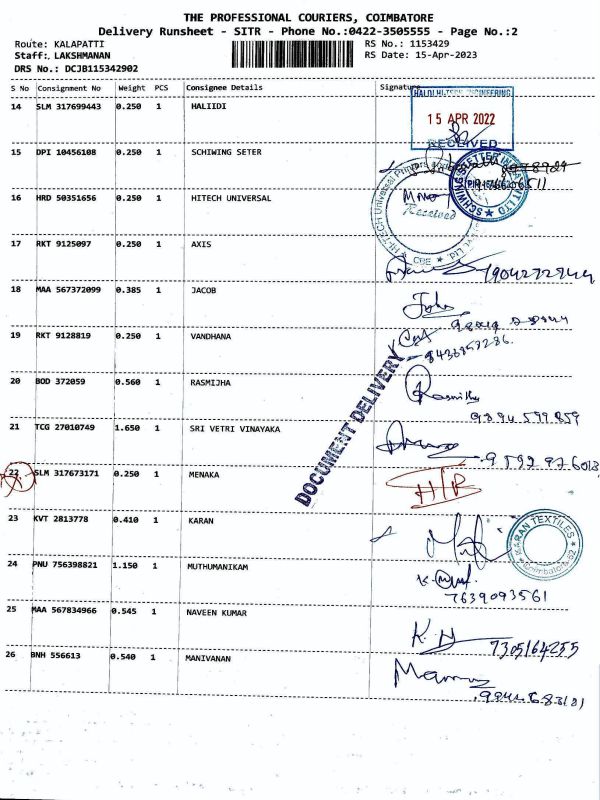 THE PROFESSIONAL COURIERS, COIMBATORE
Delivery Runsheet - SITR - Phone No.:0422-3505555 - Page No.:2
Route: KALAPATTI RS No.: 1153429
Staff: LAKSHMANAN RS Date: 15-Apr-2023
DRS No.: DCJB115342902
S No Consignment No Weight PCS Consignee Details Signature
HALDI HI-TECH ENGINEERING
14 SLM 317699443 0.250 1 HALIIDI
15 APR 2022
RECEIVED
15 DPI 10456108 0.250 1 SCHIWING SETER
16 HRD 50351656 0.250 1 HITECH UNIVERSAL
Received
CBE
17 RKT 9125097 0.250 1 AXIS
18 MAA 567372099 0.385 1 JACOB
19 RKT 9128819 0.250 1 VANDHANA
20 BOD 372059 0.560 1 RASMIJHA
9894 599 859
DOCUMENT DELIVERY
21 TCG 27010749 1.650 1 SRI VETRI VINAYAKA
22 SLM 317673171 0.250 1 MENAKA
H/B
23 KVT 2813778 0.410 1 KARAN
KARAN TEXTILES
Coimbatore-62
24 PNU 756398821 1.150 1 MUTHUMANIKAM
7639093561
25 MAA 567834966 0.545 1 NAVEEN KUMAR
7305164255
26 BNH 556613 0.540 1 MANIVANAN